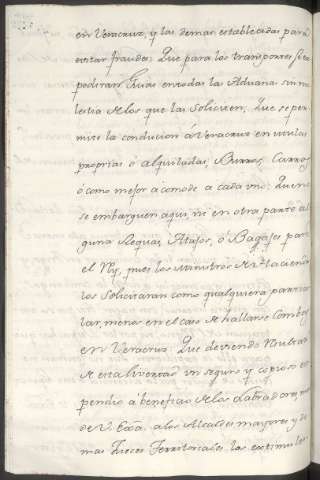 en Veracruz, y las demas establecidas para
evitar fraudes; Que para los transportes se ex
pediran Guias en todas las Aduanas sin mo
lestia de los que las Soliciten; Que se per
mite la conducion á Veracruz en mulas
proprias ó alquiladas, Burros, Carros
ó como mejor acomode a cada uno; Que no
se embarguen aqui, ni en otra parte al
guna Requas, Atajos, ó Bagajes para
el Rey, pues los Ministros de Rl. Hacienda
los Solicitaran como qualquiera particu
lar, menos en el caso de hallarse Combo
en Veracruz: Que deviendo
de esta livertad un seguro y copioso ex
pendio á beneficio de los Labradores,
de V. Exa. a los Alcaldes mayores y de
mas Jueces Territoriales, los estimulen